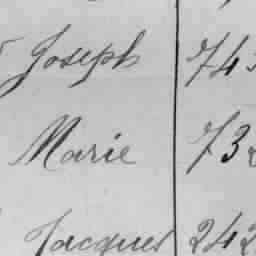 Joseph 74
Marie 73
Jacques 242